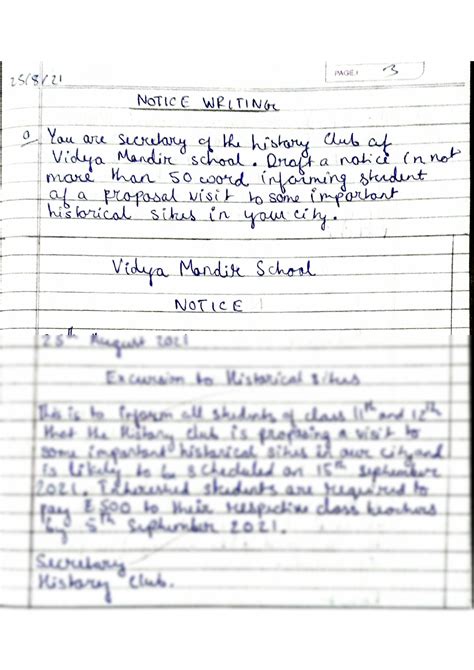 25/8/21
PAGE: 3
NOTICE WRITING
Q You are secretary of the history Club of
Vidya Mandir school. Draft a notice in not
more than 50 word informing student
of a proposal visit to some important
historical sites in your city.
Vidya Mandir School
NOTICE
25th August 2021
Excursion to Historical Sites
This is to inform all students of class 11th and 12th
that the History club is proposing a visit to
some important historical sites in our city and
is likely to be scheduled on 15th September
2021. Interested students are required to
pay ₹500 to their respective class teachers
by 5th September 2021.
Secretary
History Club.